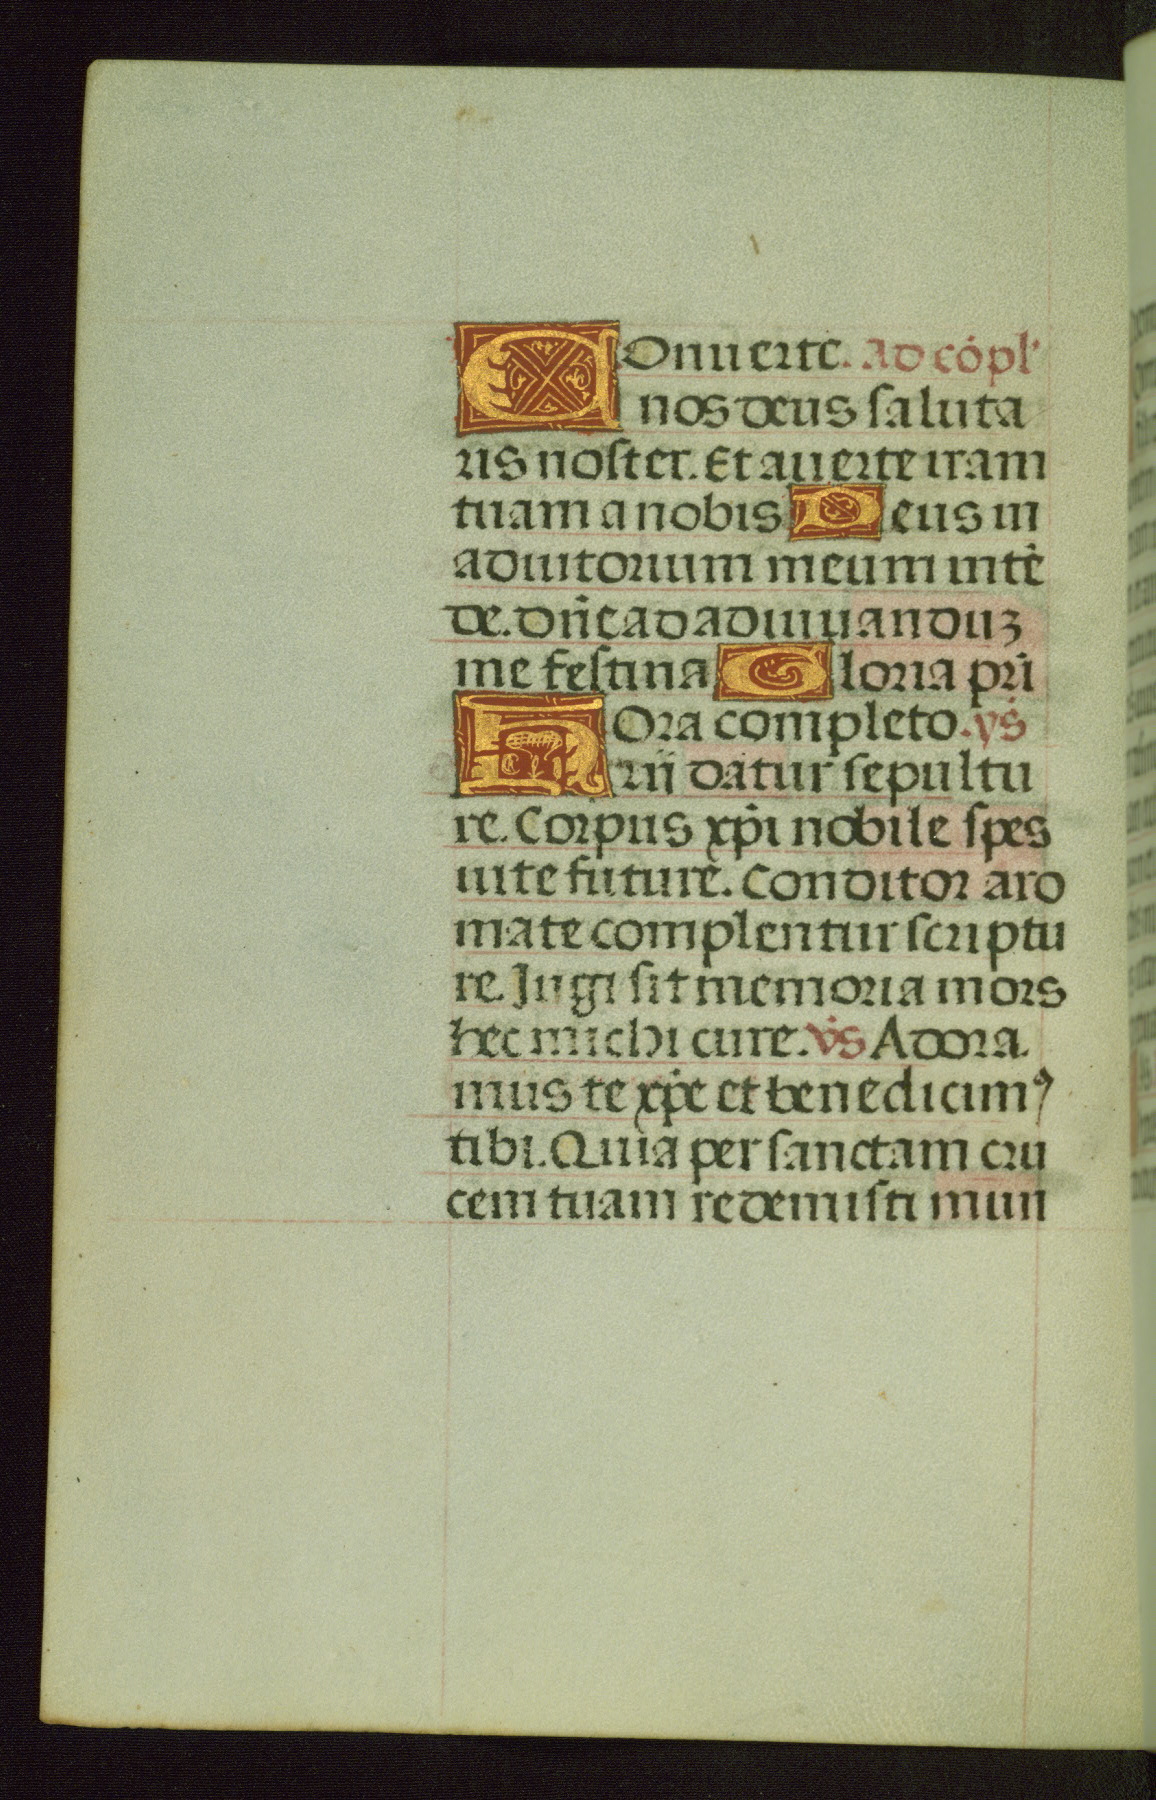 Conuerte. ad cōpl'
nos deus saluta
ris noster. Et auerte iram
tuam a nobis Deus in
adiutorium meum intē
de. dn̄e ad adiuuanduꝫ
me festina Gloria pr̄i
Hora completo. vs̄
rii datur sepultu
re. Corpus xp̄i nobile spes
uite future. Conditor aro
mate complentur scriptu
re. Jugi sit memoria mors
hec michi cure. vs̄ Adora
mus te xp̄e et benedicimꝰ
tibi. Quia per sanctam cru
cem tuam redemisti mun